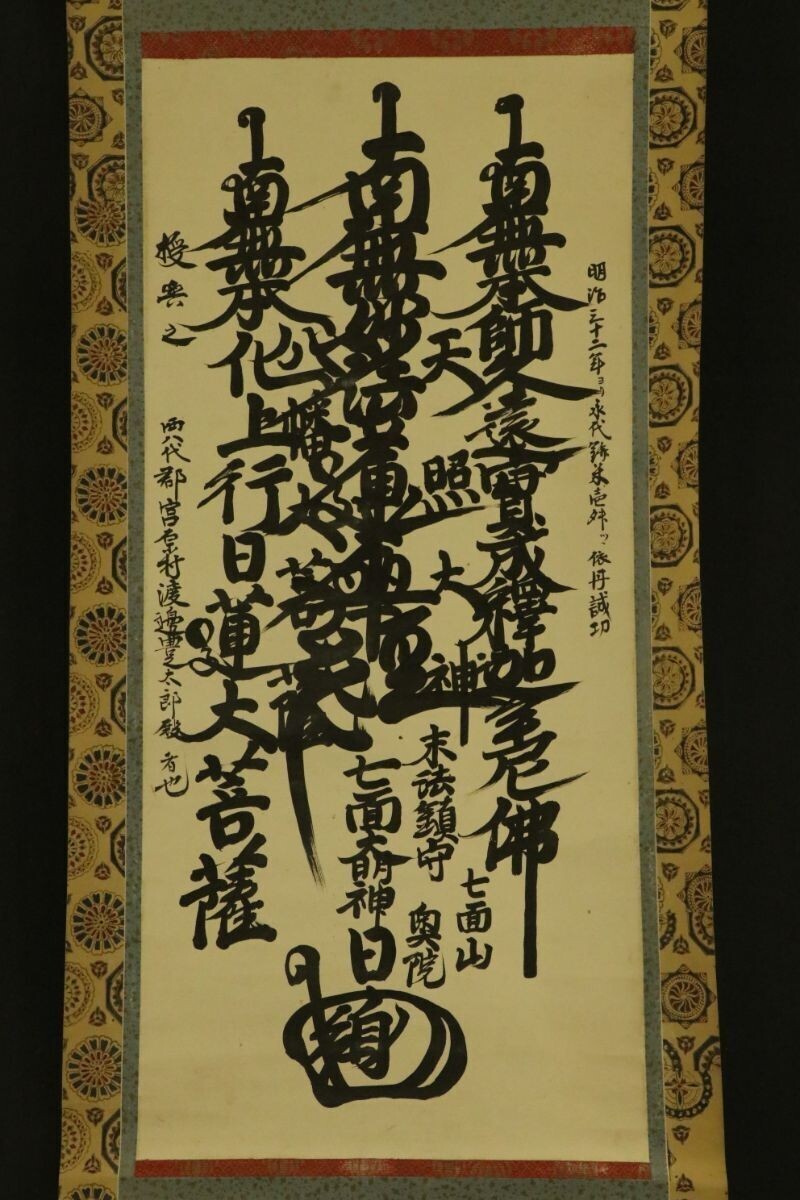 明治三十二年ヨリ永代鏡米壱舛ツヽ依丹誠功
南無本師久遠實成釋迦牟尼佛
天照大神
南無妙法蓮華経
八幡大菩薩
南無本化上行日蓮大菩薩
末法鎮守
七面大明神
七面山
奥院
日
授與之
西八代郡宮原村渡邉豊太郎殿者也